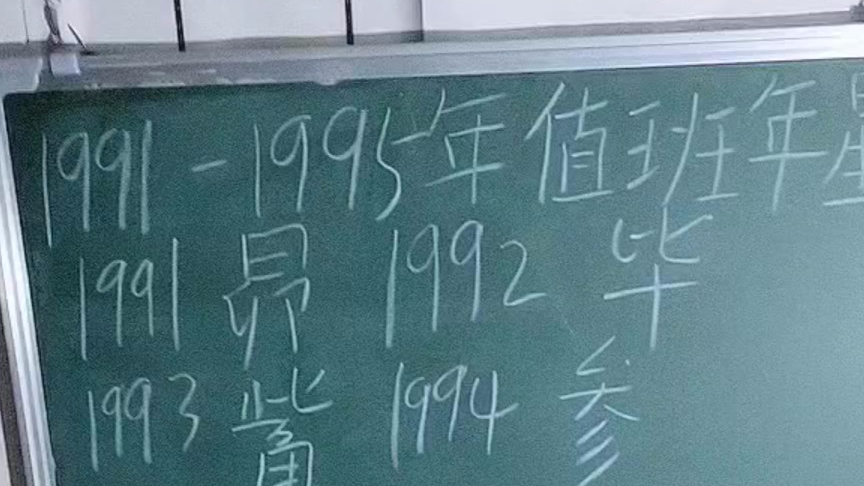 1991-1995年值班年星
1991 昴 1992 毕
1993 觜 1994 参